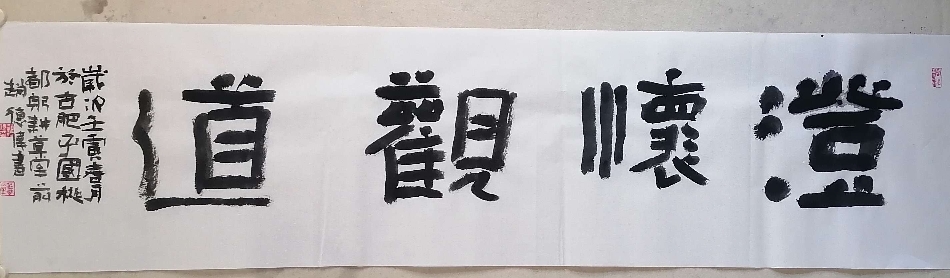 澄懷觀道
歲次壬寅春月
於古肥子國桃
都躬耕草堂前
趙德偉書